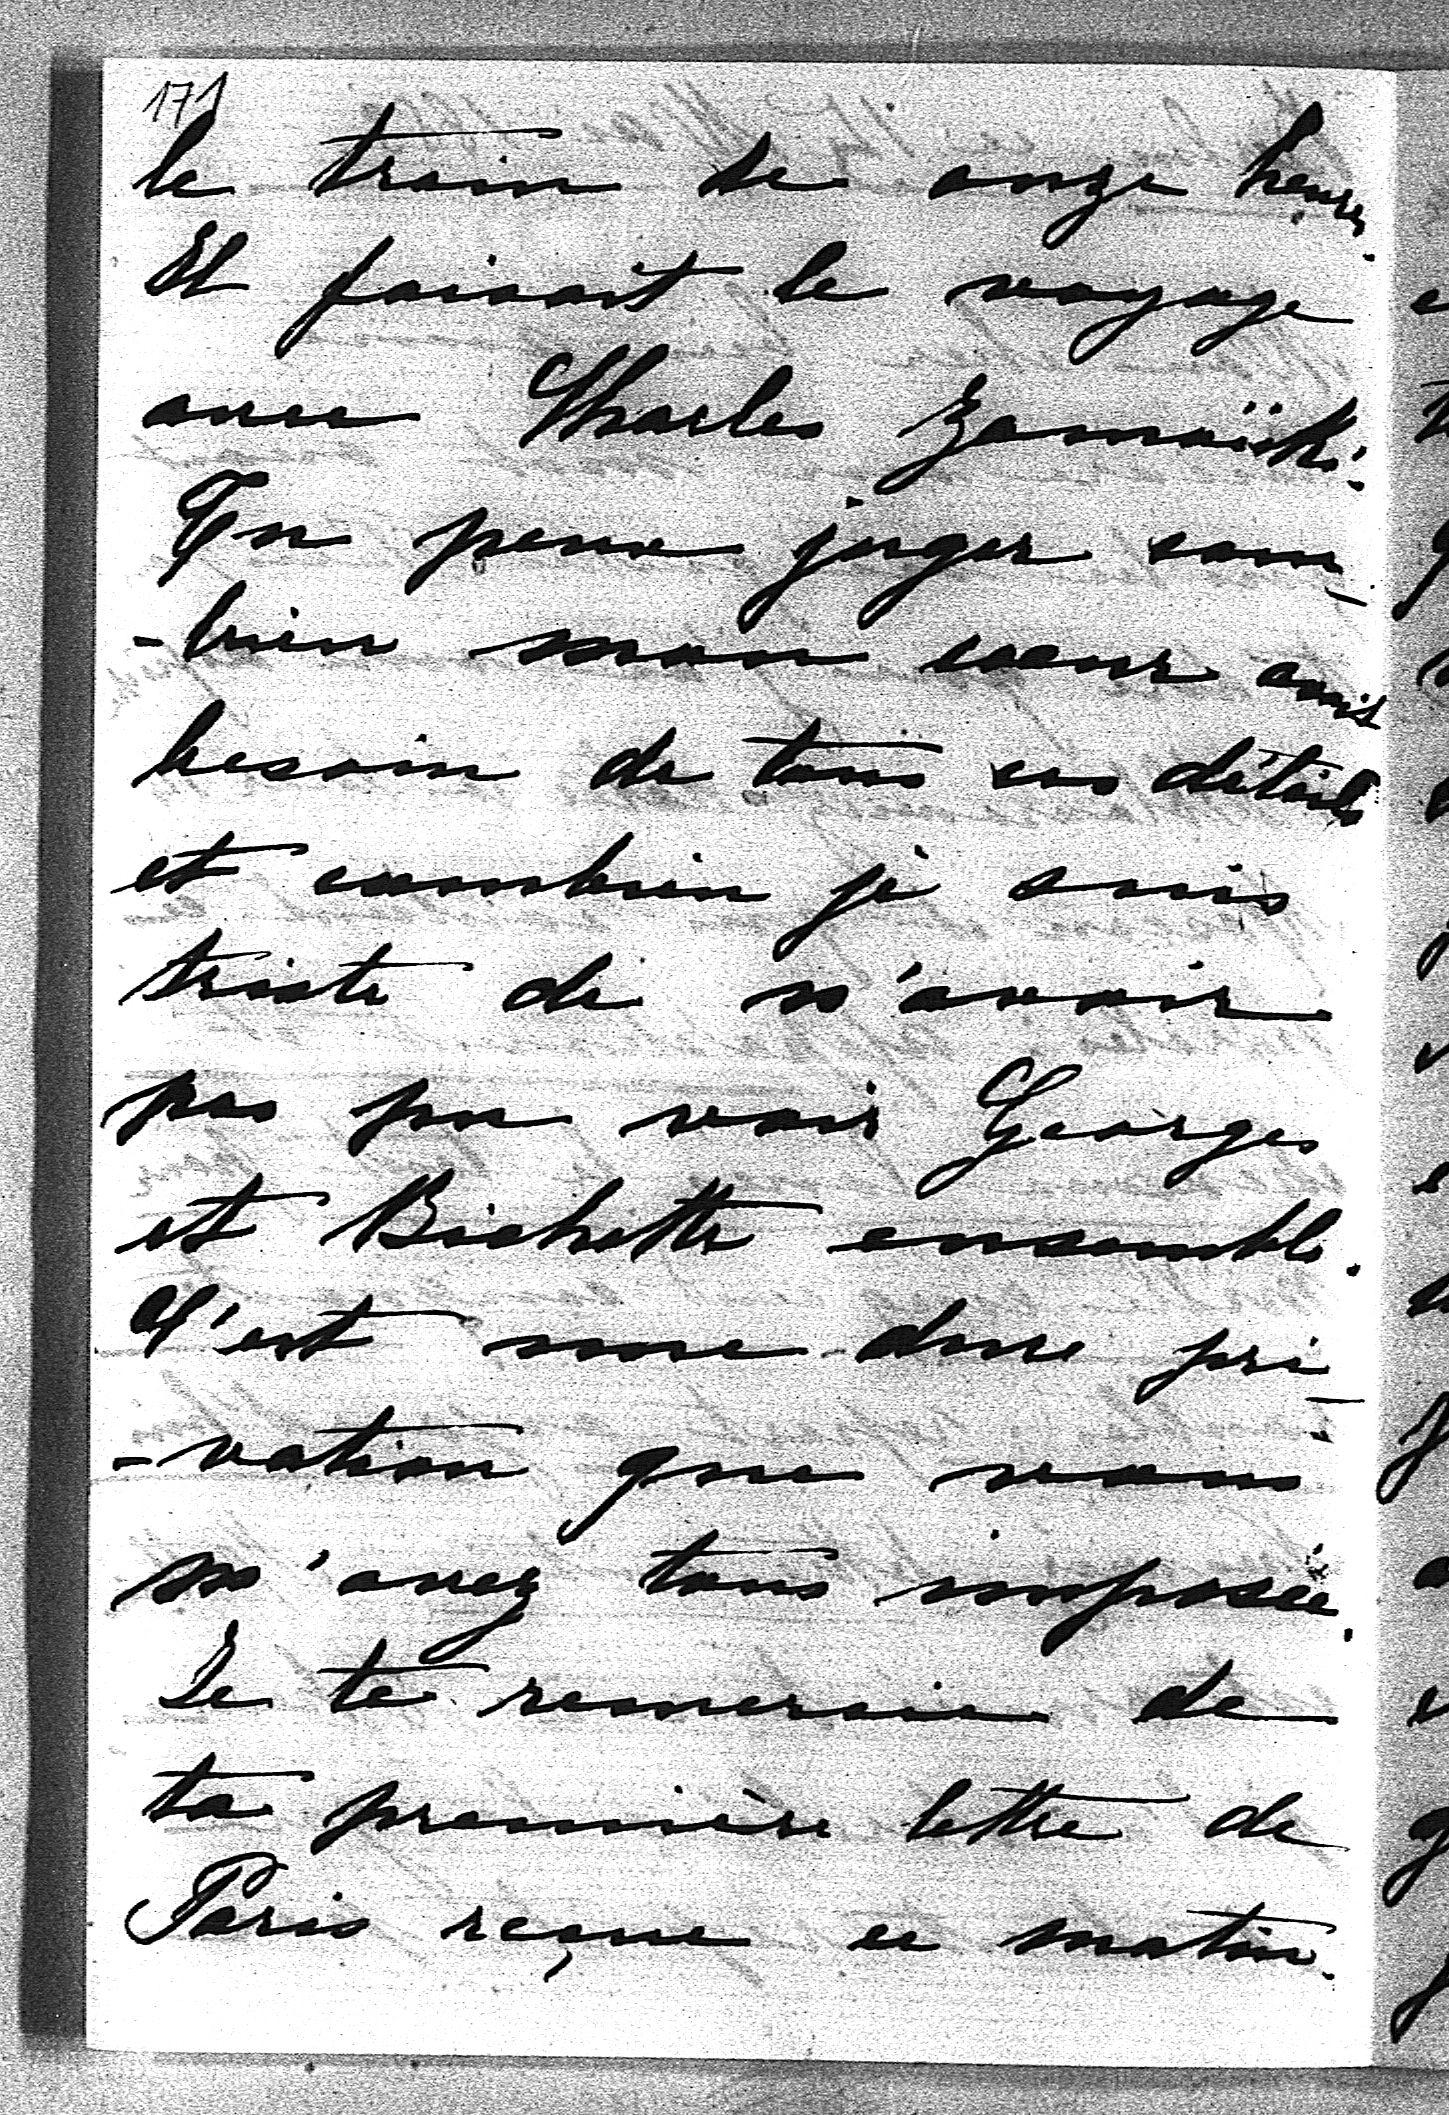 171
le train de onze heures.
Il faisait le voyage
avec Charles Zamoïski.
Tu peux juger com-
-bien mon cœur avait
besoin de tous ces détails
et combien je suis
triste de n'avoir
pas pu voir Georges
et Bichette ensemble.
C'est une dure pri-
-vation que vous
m'avez tous imposée.
Je te remercie de
ta première lettre de
Paris reçue ce matin.